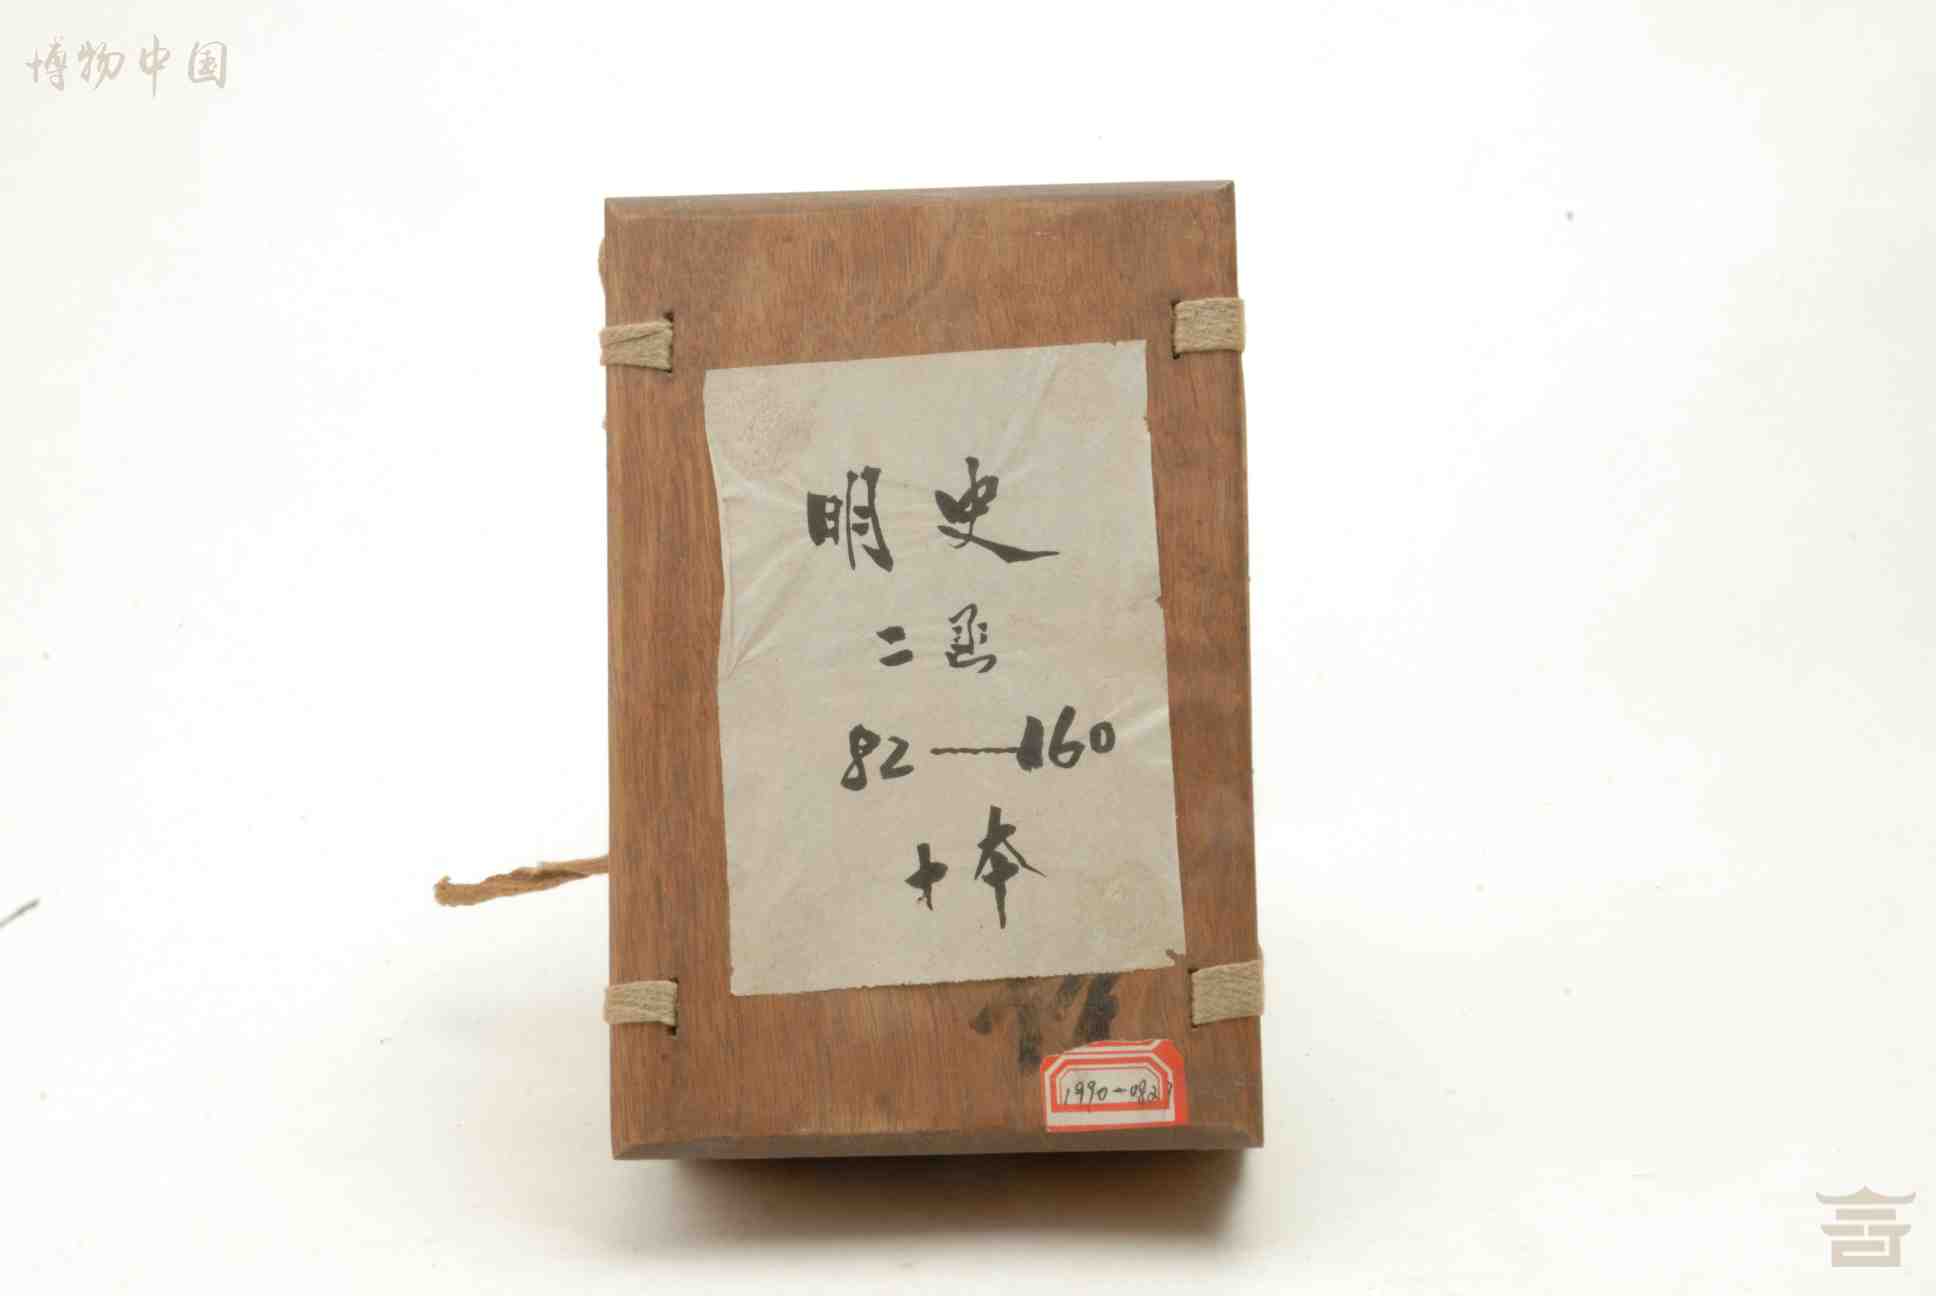 博物中国
明史
二函
82——160
十本